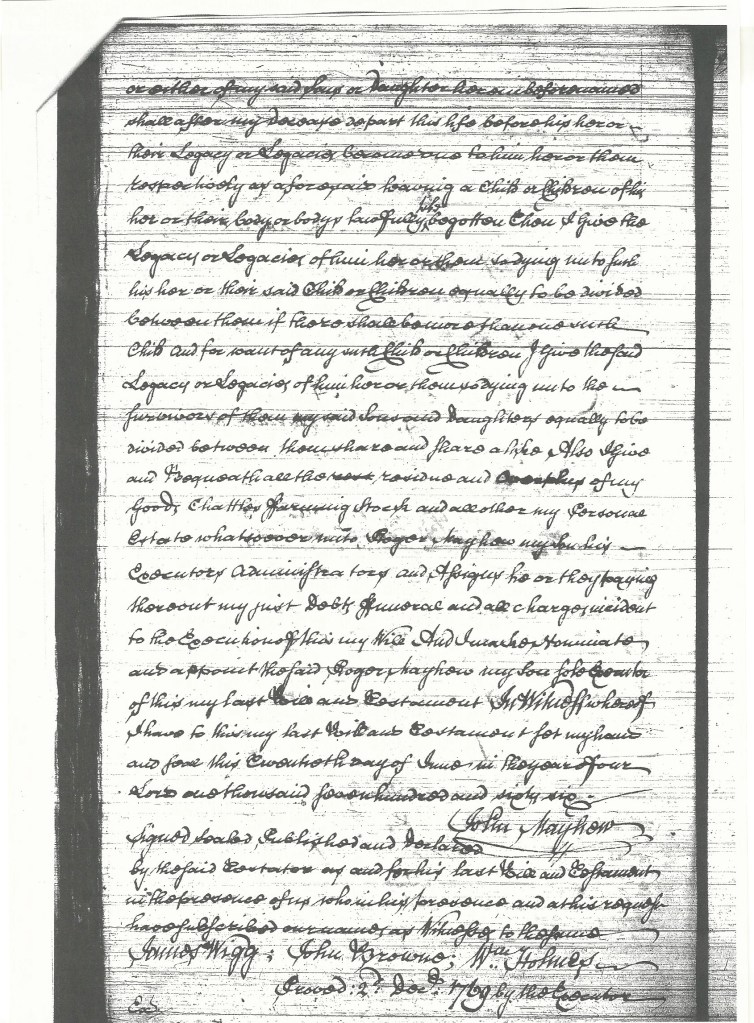 or either of my said Sons or Daughter herein before named
shall after my Decease depart this life before his her or
their Legacy or Legacies become due to him her or them
respectively as aforesaid leaving a Child or Children of his
her or their body or bodys lawfully begotten Then I Give the
Legacy or Legacies of him her or them so dying unto such
his her or their said Child or Children equally to be divided
between them if there shall be more than one such
Child And for want of any such Child or Children I Give the said
Legacy or Legacies of him her or them so dying unto the
survivors of them my said Sons and Daughters equally to be
divided between them share and share alike Also I Give
and Bequeath all the rest residue and Overplus of my
Goods Chattles Farming Stock and all other my Personal
Estate whatsoever unto Roger Mayhew my Son his
Executors Administrators and Assigns he or they paying
thereout my just Debts Funeral and all charges incident
to the Execution of this my Will And I make Nominate
and appoint the said Roger Mayhew my Son sole Executor
of this my last Will and Testament In Witness whereof
I have to this my last Will and Testament set my hand
and seal this Twentieth day of June in the year of our
Lord one thousand seven hundred and sixty six
John Mayhew
Signed sealed Published and Declared
by the said Testator as and for his last Will and Testament
in the presence of us who in his presence and at his request
have subscribed our names as Witnesses to the same
James Wigg: John Browne; Wm. Holmes
Proved: 2d. Decr. 1769 by the Executor